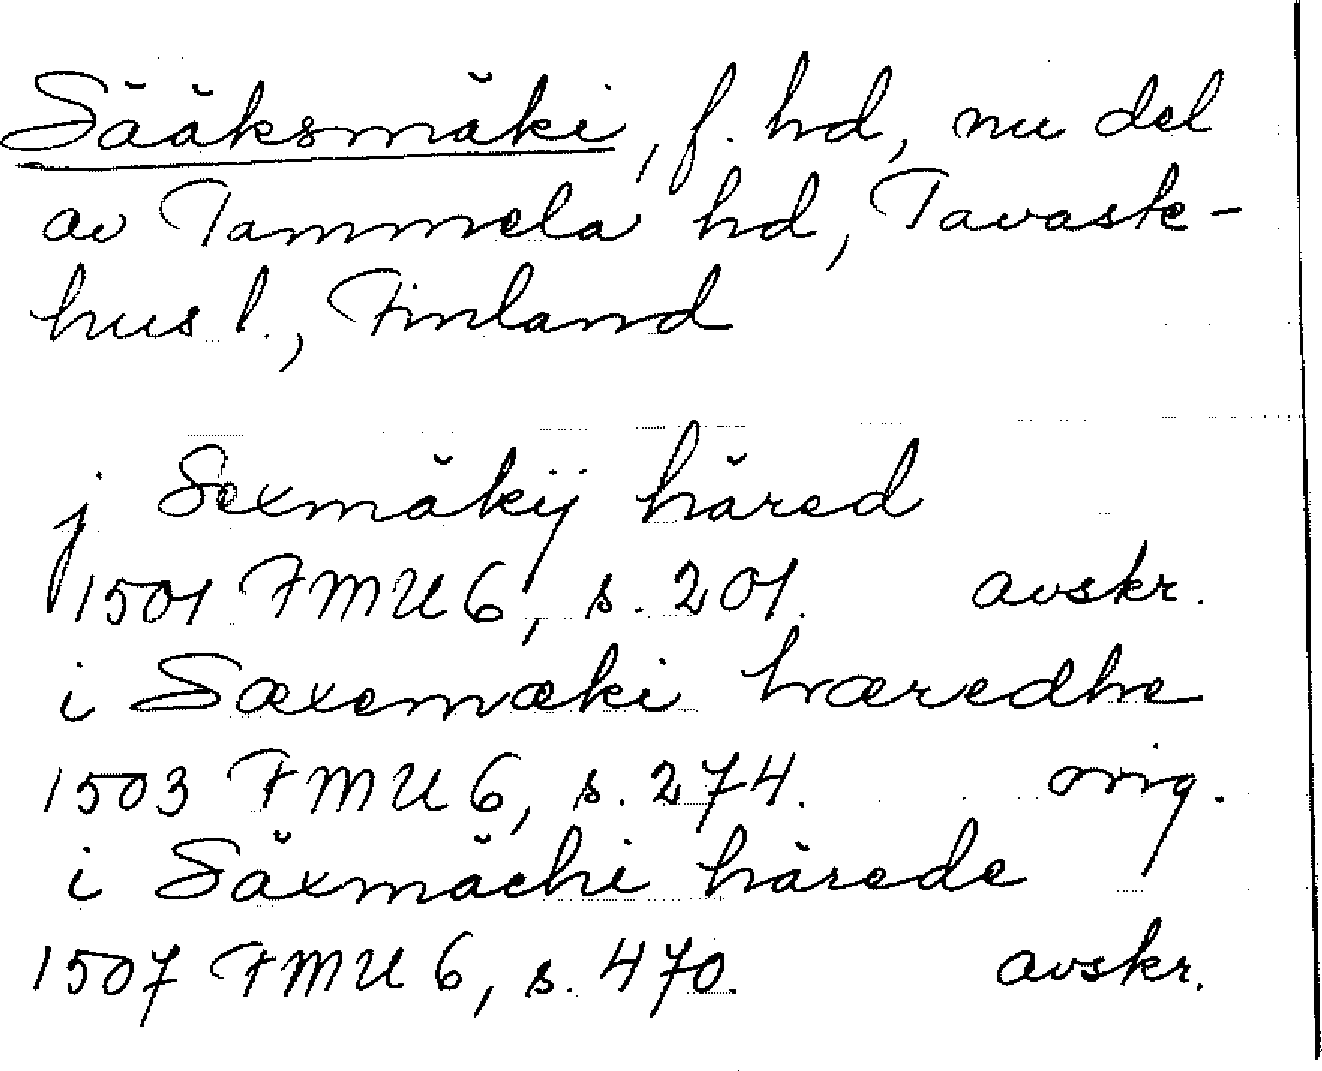 Sääksmäki, f. hd, nu del
av Tammela hd, Tavaste-
hus l., Finland
j Sexmäkij häred
1501 FMU 6, s. 201. avskr.
i Sæxemæki hæredhe
1503 FMU 6, s. 274. orig.
i Säxmächi härede
1507 FMU 6, s. 470. avskr.